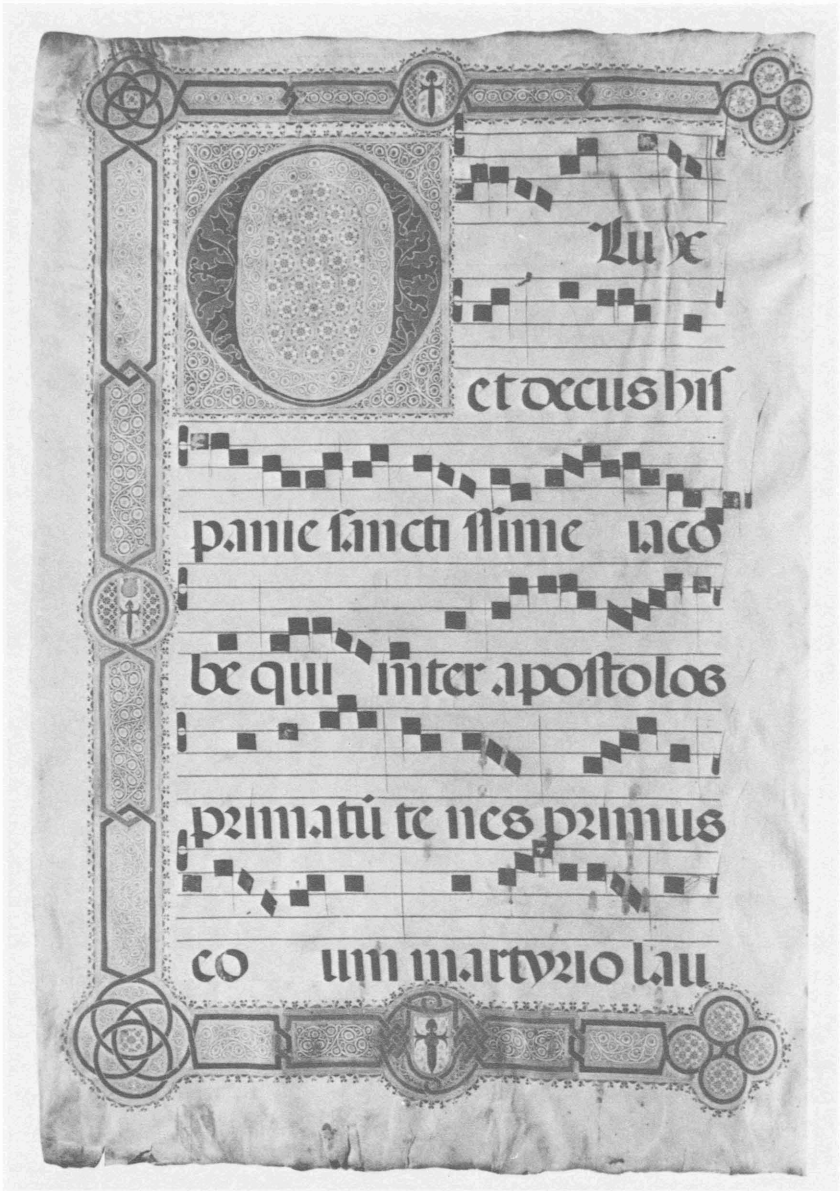 O Lux
et decus hiſ
panie ſancti ſſime iaco
be qui inter apoſtolos
primatū te nes primus
co um martyrio lau